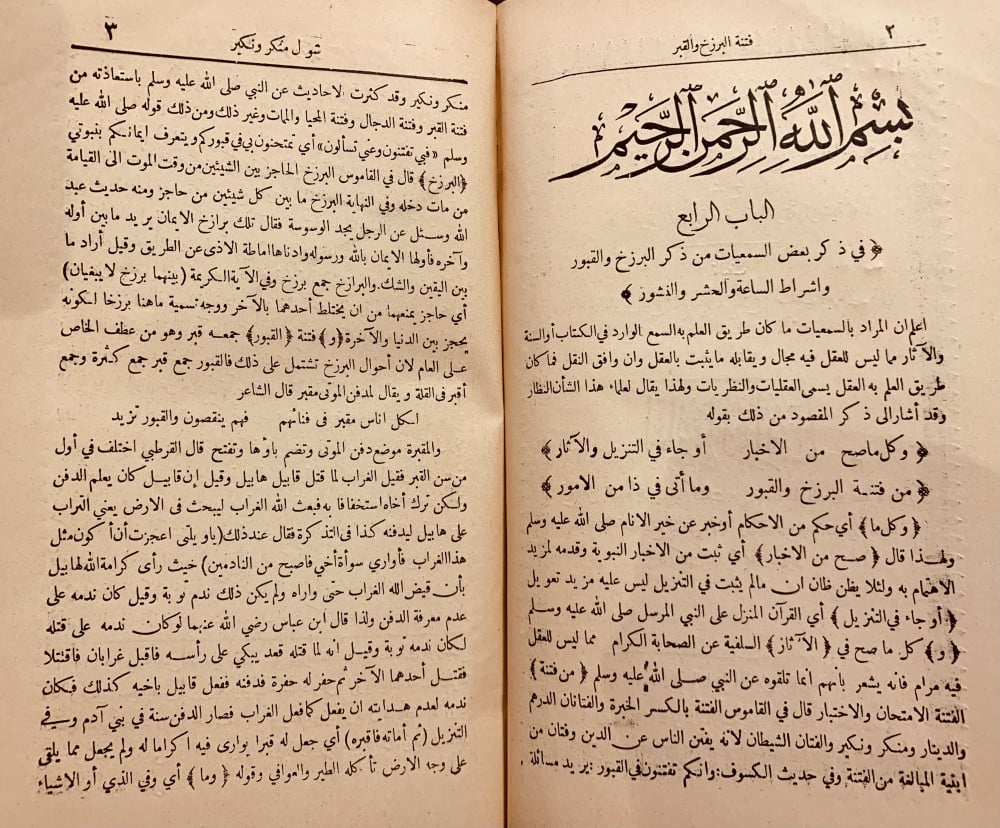 ٢
فتنة البرزخ والقبر
بسم الله الرحمن الرحيم
الباب الرابع
﴿ في ذكر بعض السمعيات من ذكر البرزخ والقبور
واشراط الساعة والحشر والنشور ﴾
اعلم ان المراد بالسمعيات ما كان طريق العلم به السمع الوارد في الكتاب أو السنة
والآثار مما ليس للعقل فيه مجال و يقابله ما يثبت بالعقل وان وافق النقل فما كان
طريق العلم به العقل يسمى العقليات والنظريات ولهذا يقال لعلماء هذا الشأن النظار
وقد أشار الى ذكر المقصود من ذلك بقوله
﴿ وكل ما صح من الاخبار أو جاء في التنزيل والآثار ﴾
﴿ من فتنة البرزخ والقبور وما أتى في ذا من الامور ﴾
﴿ وكل ما ﴾ أي حكم من الاحكام أو خبر عن خير الانام صلى الله عليه وسلم
ولهذا قال ﴿ صح من الاخبار ﴾ أي ثبت من الاخبار النبوية وقدمه لمزيد
الاهتمام به ولئلا يظن ظان ان مالم يثبت في التنزيل ليس عليه مزيد تعويل
﴿ أو جاء في التنزيل ﴾ أي القرآن المنزل على النبي المرسل صلى الله عليه وسلم
﴿ و ﴾ كل ما صح في ﴿ الآثار ﴾ السلفية عن الصحابة الكرام مما ليس للعقل
فيه مرام فانه يشعر بأنهم انما تلقوه عن النبي صلى الله عليه وسلم ﴿ من فتنة ﴾
الفتنة الامتحان والاختبار قال في القاموس الفتنة بالكسر الخبرة والفتانان الدرهم
والدينار ومنكر ونكير والفتان الشيطان لانه يفتن الناس عن الدين وفتان من
ابنية المبالغة من الفتنة وفي حديث الكسوف: وانكم تفتنون في القبور: يريد مسائلة
٣
سؤال منكر ونكير
منكر ونكير وقد كثرت الاحاديث عن النبي صلى الله عليه وسلم باستعاذته من
فتنة القبر وفتنة الدجال وفتنة المحيا والممات وغير ذلك ومن ذلك قوله صلى الله عليه
وسلم «فبي تفتنون وعني تسألون» أي تمتحنون بي في قبوركم ويتعرف ايمانكم بنبوتي
﴿البرزخ﴾ قال في القاموس البرزخ الحاجز بين الشيئين من وقت الموت الى القيامة
من مات دخله وفي النهاية البرزخ ما بين كل شيئين من حاجز ومنه حديث عبد
الله وسئل عن الرجل يجد الوسوسة فقال تلك برازخ الايمان يريد ما بين أوله
وآخره فأولها الايمان بالله ورسوله وادناها اماطة الاذى عن الطريق وقيل أراد ما
بين اليقين والشك. والبرازخ جمع برزخ وفي الآية الكريمة (بينهما برزخ لا يبغيان)
أي حاجز يمنعهما من ان يختلط أحدهما بالآخر ووجه تسمية ما هنا برزخا لكونه
يحجز بين الدنيا والآخرة ﴿و﴾ فتنة ﴿القبور﴾ جمعه قبر وهو من عطف الخاص
على العام لان أحوال البرزخ تشتمل على ذلك فالقبور جمع قبر جمع كثرة وجمع
أقبر في القلة و يقال لمدفن الموتى مقبر قال الشاعر
لكل اناس مقبر في فنائهم فهم ينقصون والقبور تزيد
والمقبرة موضع دفن الموتى وتضم باؤها وتفتح قال القرطبي اختلف في أول
من سن القبر فقيل الغراب لما قتل قابيل هابيل وقيل إن قابيل كان يعلم الدفن
ولكن ترك أخاه استخفافا به فبعث الله الغراب ليبحث في الارض يعني التراب
على هابيل ليدفنه كذا في التذكرة فقال عند ذلك (يا ويلتى اعجزت أن أكون مثل
هذا الغراب فأواري سوأة أخي فاصبح من النادمين) حيث رأى كرامة الله لهابيل
بأن قيض الله الغراب حتى واراه ولم يكن ذلك ندم توبة وقيل كان ندمه على
عدم معرفة الدفن ولذا قال ابن عباس رضي الله عنهما لو كان ندمه على قتله
لكان ندمه توبة وقيل انه لما قتله قعد يبكي على رأسه فاقبل غرابان فاقتتلا
فقتل أحدهما الآخر ثم حفر له حفرة فدفنه ففعل قابيل باخيه كذلك فكان
ندمه لعدم هدايته ان يفعل كما فعل الغراب فصار الدفن سنة في بني آدم وفي
التنزيل (ثم أماته فاقبره) أي جعل له قبرا يوارى فيه اكراما له ولم يجعل مما يلقى
على وجه الارض تأكله الطير والعوافي وقوله ﴿ وما ﴾ أي وفي الذي أو الاشياء